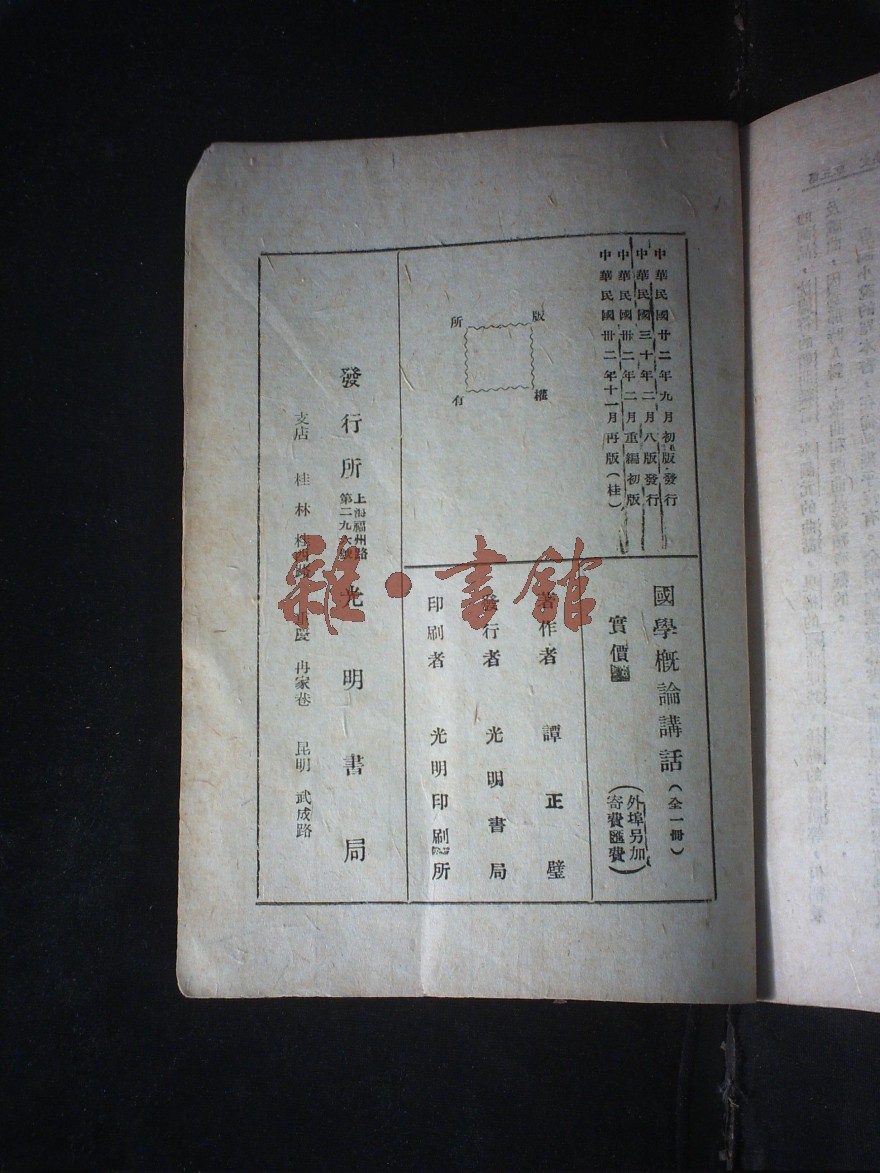 中華民國廿二年九月初版發行
中華民國三十年二月八版發行
中華民國卅二年二月重編初版
中華民國卅二年十一月再版(桂)
版權所有
國學概論講話(全一冊)
實價
(外埠另加
寄費匯費)
著作者 譚正璧
發行者 光明書局
印刷者 光明印刷所
發行所 上海福州路 光明書局
第二九六號
支店 桂林 桂西路 重慶 冉家巷 昆明 武成路
雜·書館